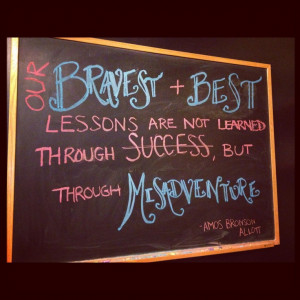 OUR BRAVEST + BEST
LESSONS ARE NOT LEARNED
THROUGH SUCCESS, BUT
THROUGH MISADVENTURE
-AMOS BRONSON
ALCOTT